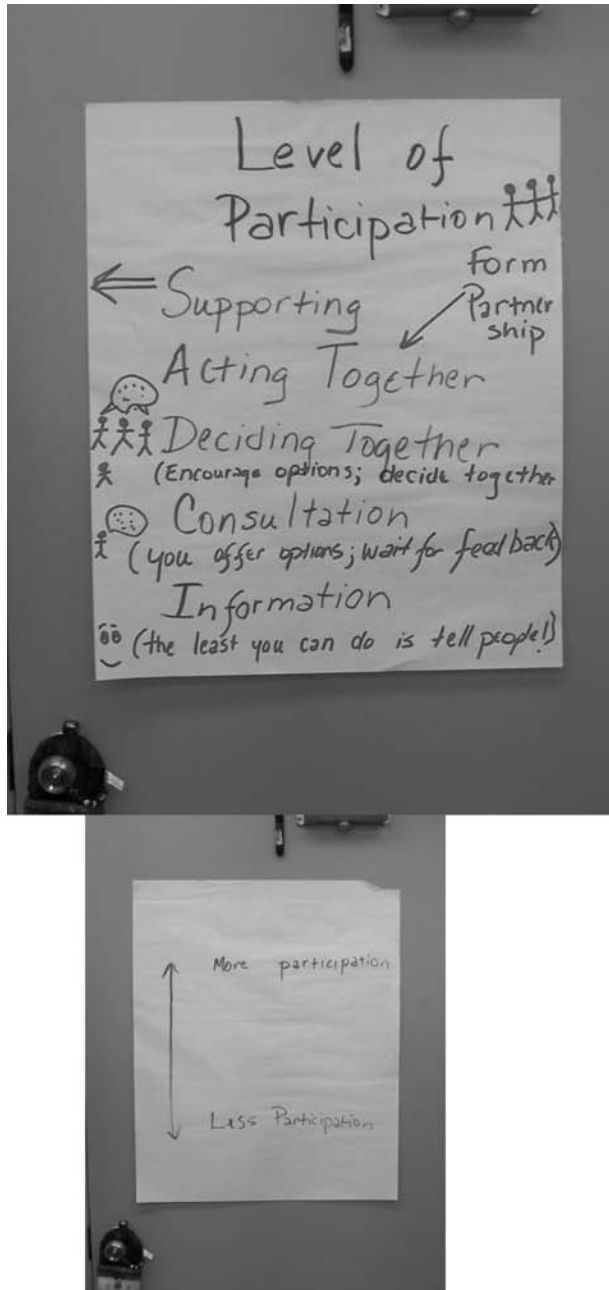 Level of
Participation
Form
Partner
ship
Supporting
Acting Together
Deciding Together
(Encourage options; decide together
Consultation
(you offer options; wait for feedback)
Information
(the least you can do is tell people!)
More participation
Less Participation